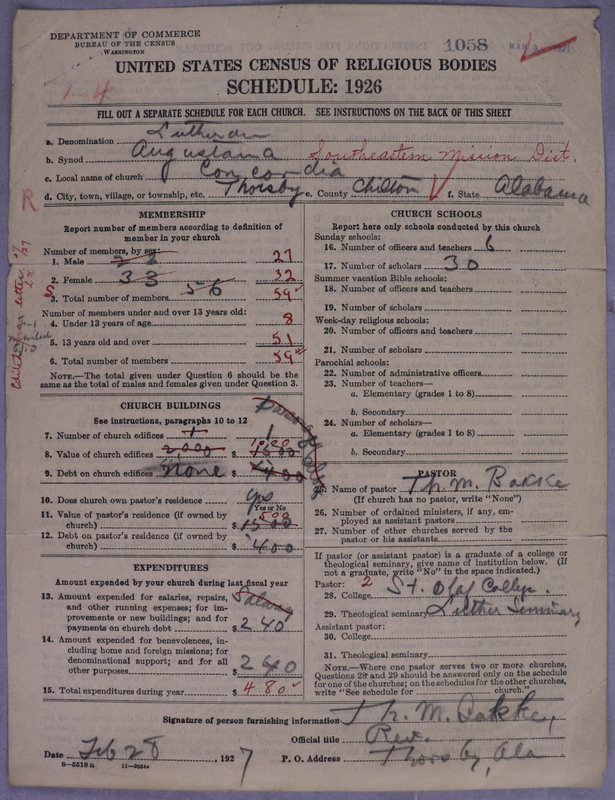 DEPARTMENT OF COMMERCE
BUREAU OF THE CENSUS
WASHINGTON
1058
UNITED STATES CENSUS OF RELIGIOUS BODIES
SCHEDULE: 1926
1-4
FILL OUT A SEPARATE SCHEDULE FOR EACH CHURCH. SEE INSTRUCTIONS ON THE BACK OF THIS SHEET
a. Denomination Lutheran
b. Synod Augustana Southeastern Mission Dist.
c. Local name of church Concordia
d. City, town, village, or township, etc. Thorsby e. County Chilton f. State Alabama
R
MEMBERSHIP
Report number of members according to definition of member in your church
Number of members, by sex:
1. Male 23 27
2. Female 33 32
3. Total number of members 56 59
Number of members under and over 13 years old:
4. Under 13 years of age 8
5. 13 years old and over 51
6. Total number of members 59
NOTE.—The total given under Question 6 should be the same as the total of males and females given under Question 3.
CHURCH BUILDINGS
See instructions, paragraphs 10 to 12
7. Number of church edifices 1 1
8. Value of church edifices 2,000 $ 1500 1000
9. Debt on church edifices None $ 400
10. Does church own pastor's residence yes
Yes or No
11. Value of pastor's residence (if owned by church) $ 1500 500
12. Debt on pastor's residence (if owned by church) $ 400
EXPENDITURES
Amount expended by your church during last fiscal year
13. Amount expended for salaries, repairs, and other running expenses; for improvements or new buildings; and for payments on church debt Salary $ 240
14. Amount expended for benevolences, including home and foreign missions; for denominational support; and for all other purposes $ 240
15. Total expenditures during year $ 480
CHURCH SCHOOLS
Report here only schools conducted by this church
Sunday schools:
16. Number of officers and teachers 6
17. Number of scholars 30
Summer vacation Bible schools:
18. Number of officers and teachers
19. Number of scholars
Week-day religious schools:
20. Number of officers and teachers
21. Number of scholars
Parochial schools:
22. Number of administrative officers
23. Number of teachers—
a. Elementary (grades 1 to 8)
b. Secondary
24. Number of scholars—
a. Elementary (grades 1 to 8)
b. Secondary
PASTOR
Name of pastor Th. M. Bakke
(If church has no pastor, write "None")
26. Number of ordained ministers, if any, employed as assistant pastors
27. Number of other churches served by the pastor or his assistants
If pastor (or assistant pastor) is a graduate of a college or theological seminary, give name of institution below. (If not a graduate, write "No" in the space indicated.)
Pastor: 2
28. College St. Olaf College.
29. Theological seminary Luther Seminary
Assistant pastor:
30. College
31. Theological seminary
NOTE.—Where one pastor serves two or more churches, Questions 28 and 29 should be answered only on the schedule for one of the churches; on the schedules for the other churches, write "See schedule for church."
Signature of person furnishing information Th. M. Bakke,
Official title Rev.
Date Feb 28, 1927 P. O. Address Thorsby, Ala
8-5518a 11-9034a